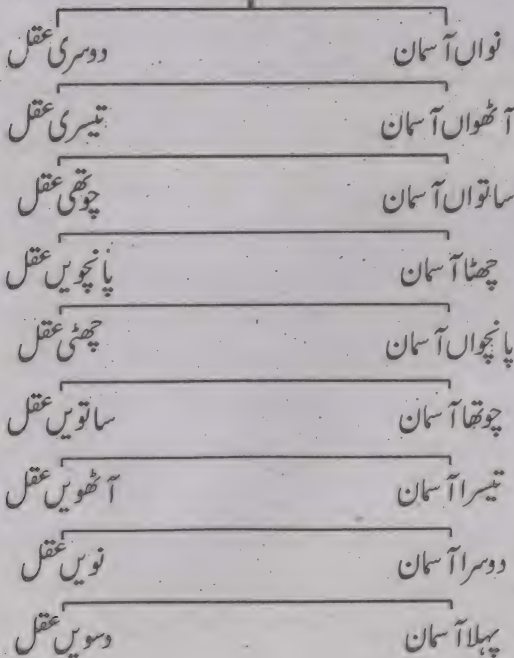 نواں آسمان دوسری عقل
آٹھواں آسمان تیسری عقل
ساتواں آسمان چوتھی عقل
چھٹا آسمان پانچویں عقل
پانچواں آسمان چھٹی عقل
چوتھا آسمان ساتویں عقل
تیسرا آسمان آٹھویں عقل
دوسرا آسمان نویں عقل
پہلا آسمان دسویں عقل